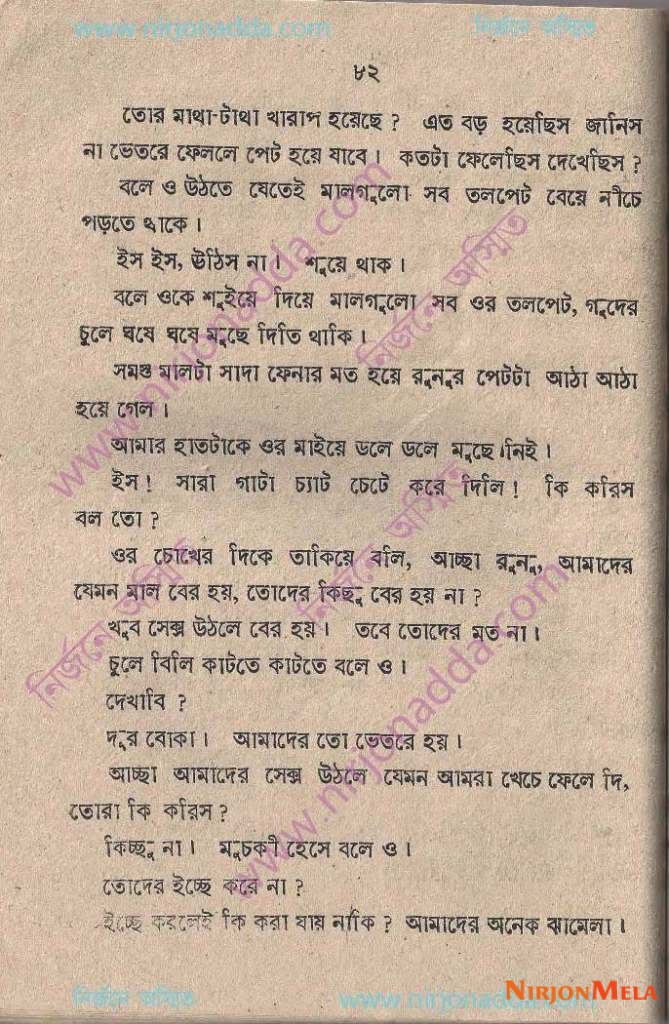 www.nirjonadda.com নির্জনে অস্মিত
৮২
তোর মাথা-টাথা খারাপ হয়েছে ? এত বড় হয়েছিস জানিস
না ভেতরে ফেললে পেট হয়ে যাবে। কতটা ফেলেছিস দেখেছিস ?
বলে ও উঠতে যেতেই মালগুলো সব তলপেট বেয়ে নীচে
পড়তে থাকে।
ইস ইস, উঠিস না। শুয়ে থাক।
বলে ওকে শুইয়ে দিয়ে মালগুলো সব ওর তলপেট, গুদের
চুলে ঘষে ঘষে মুছে দিতি থাকি।
সমস্ত মালটা সাদা ফেনার মত হয়ে রুনুর পেটটা আঠা আঠা
হয়ে গেল।
আমার হাতটাকে ওর মাইয়ে ডলে ডলে মুছে নিই।
ইস! সারা গাটা চ্যাট চেটে করে দিলি! কি করিস
বল তো ?
ওর চোখের দিকে তাকিয়ে বলি, আচ্ছা রুনু, আমাদের
যেমন মাল বের হয়, তোদের কিছু বের হয় না ?
খুব সেক্স উঠলে বের হয়। তবে তোদের মত না।
চুলে বিলি কাটতে কাটতে বলে ও।
দেখাবি ?
দূর বোকা। আমাদের তো ভেতরে হয়।
আচ্ছা আমাদের সেক্স উঠলে যেমন আমরা খেচে ফেলে দি,
তোরা কি করিস ?
কিচ্ছু না। মুচকী হেসে বলে ও।
তোদের ইচ্ছে করে না ?
ইচ্ছে করলেই কি করা যায় নাকি ? আমাদের অনেক ঝামেলা।
নির্জনে অস্মিত www.nirjonadda.com
NIRJONMELA
www.nirjonadda.com
নির্জনে অস্মিত
নির্জনে অস্মিত
নির্জনে অস্মিত
www.nirjonadda.com